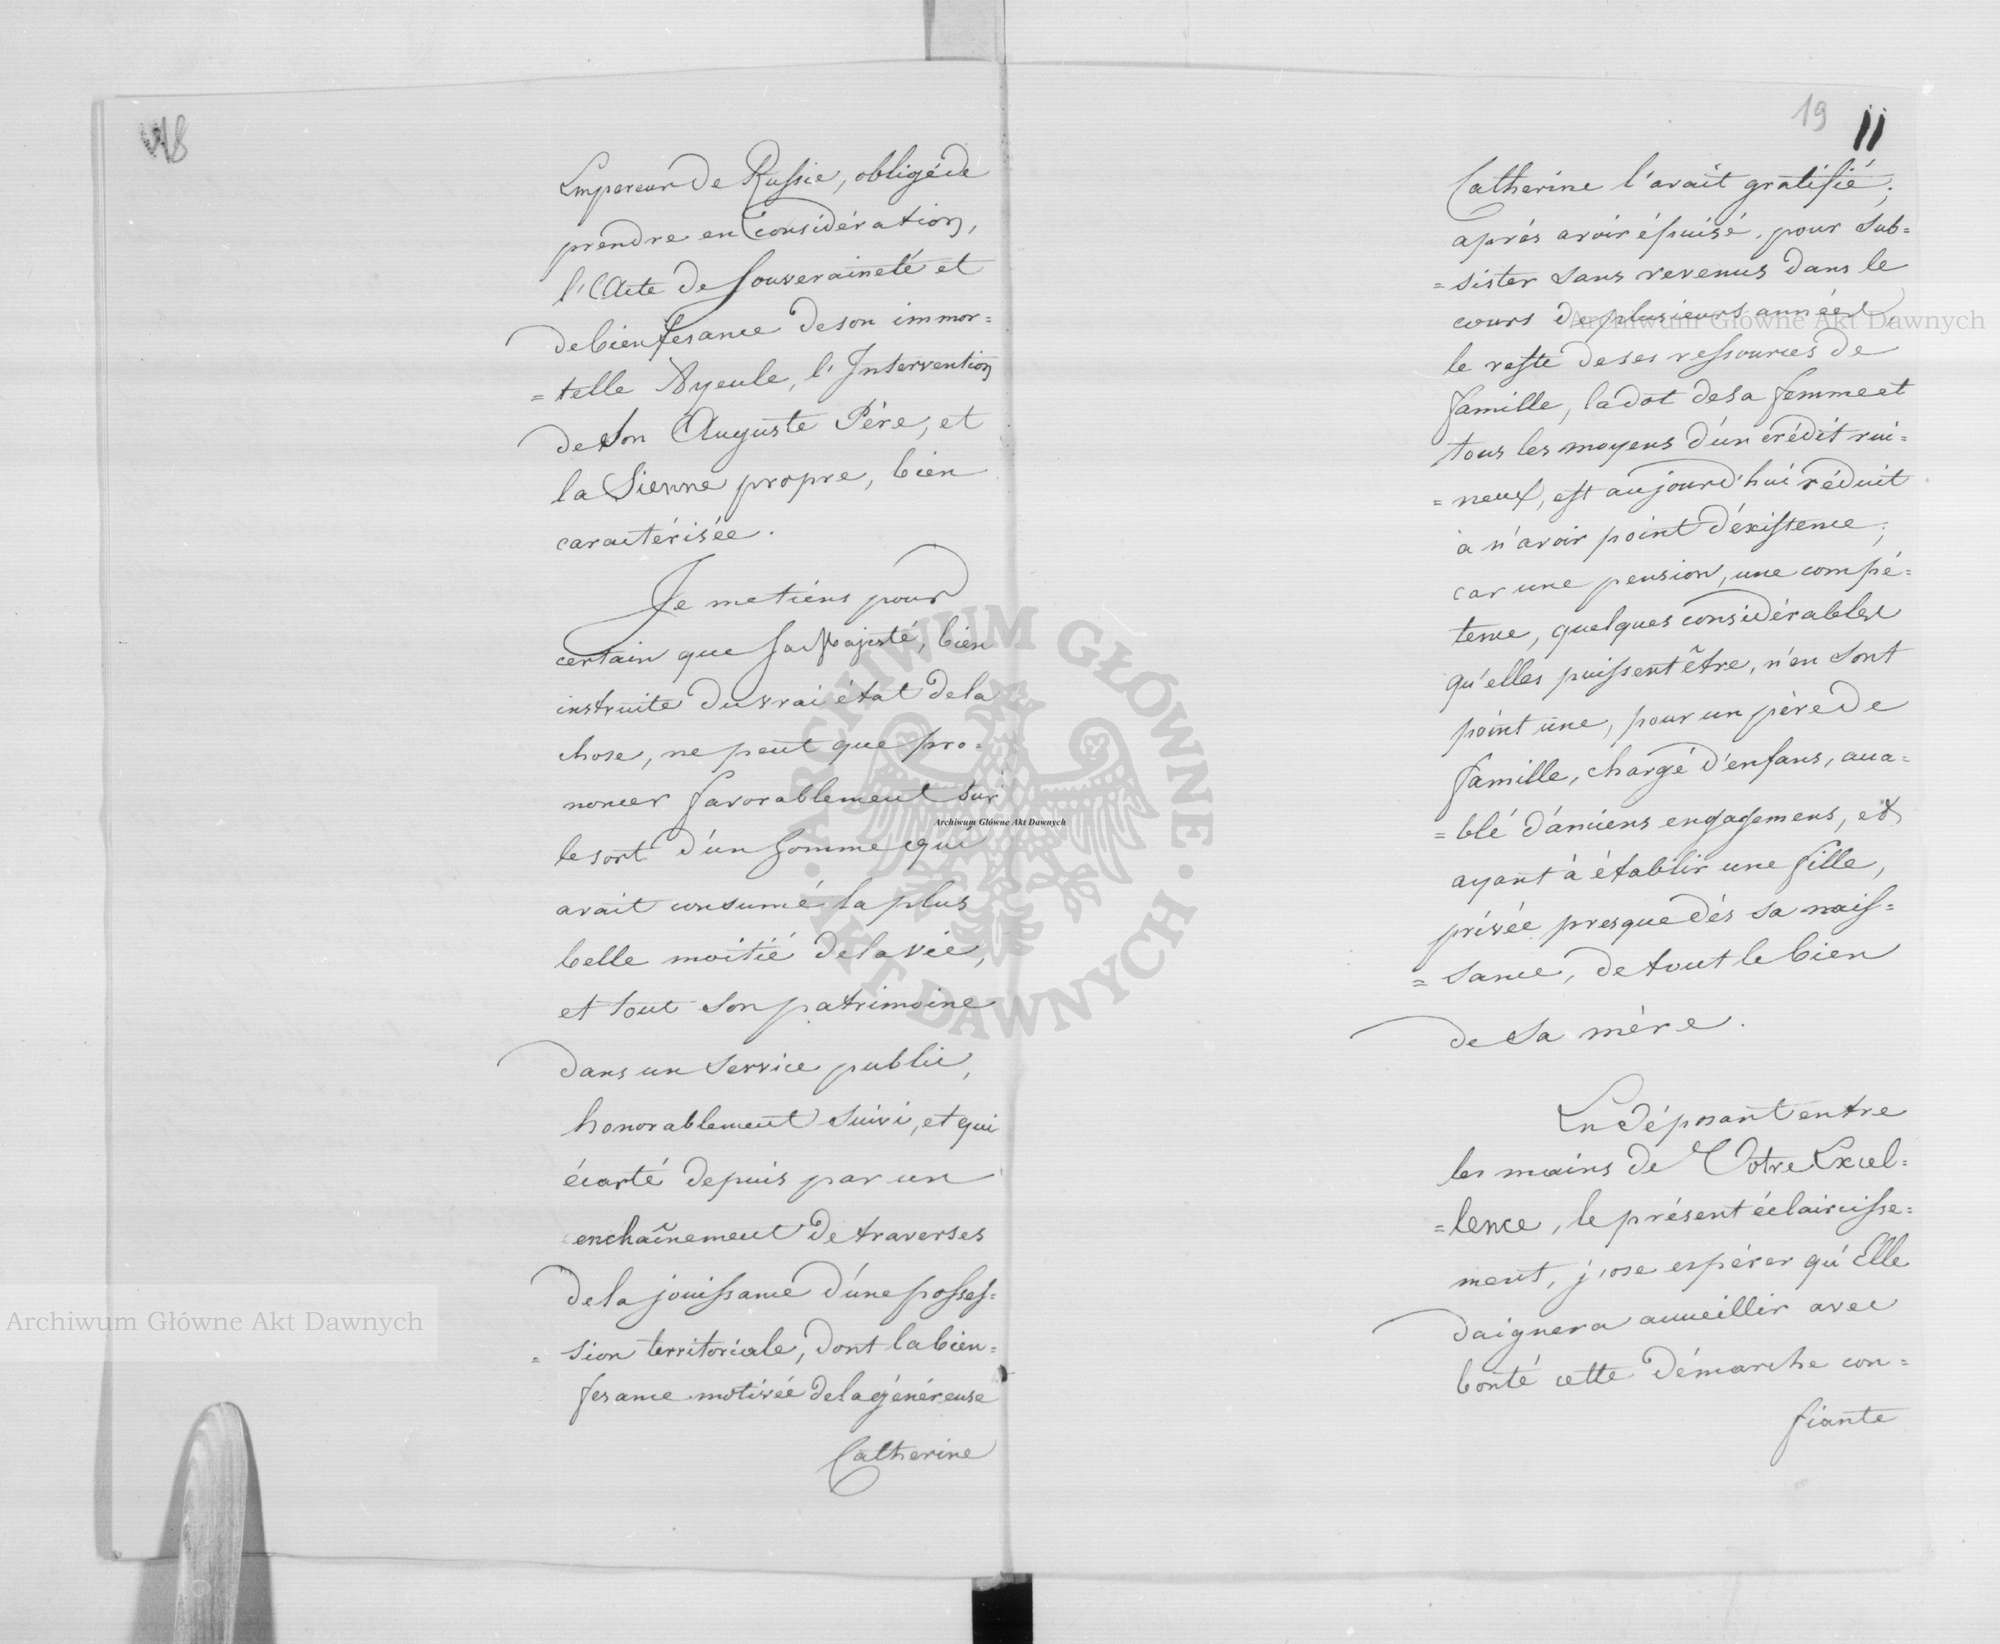 18
Empereur de Russie, obligé de
prendre en Considération,
l'Acte de Souveraineté et
de bienfesance de son immor=
=telle Ayeule, l'Intervention
de Son Auguste Père, et
la Sienne propre, bien
caractérisée.
Je me tiens pour
certain que Sa Majesté, bien
instruite du vrai état de la
chose, ne peut que pro=
noncer favorablement sur
le sort d'un homme qui
avait consumé la plus
belle moitié de la vie,
et tout son patrimoine
dans un service public,
honorablement suivi, et qui
écarté depuis par un
enchaînement de traverses
de la jouissance d'une posses=
=sion territoriale, dont la bien=
fesance motivée de la généreuse
Catherine
19 11
Catherine l'avait gratifié,
après avoir épuisé, pour sub=
=sister sans revenus dans le
cours de plusieurs années,
le reste de ses ressources de
famille, la dot de sa femme et
tous les moyens d'un crédit rui=
=neux, est aujourd'hui réduit
à n'avoir point d'éxistence;
car une pension, une compé=
tence, quelques considérables
qu'elles puissent être, n'en sont
point une, pour un père de
famille, chargé d'enfans, acca=
=blé d'anciens engagemens, et
ayant à établir une fille,
privée presque dès sa nais=
=sance, de tout le bien
de sa mère.
En déposant entre
les mains de Votre Excel=
=lence, le présent éclaircisse=
ment, j'ose espérer qu'Elle
daignera accueillir avec
bonté cette démarche con=
fiante
Archiwum Główne Akt Dawnych
Archiwum Główne Akt Dawnych
Archiwum Główne Akt Dawnych
ARCHIWUM GŁÓWNE · AKT DAWNYCH ·